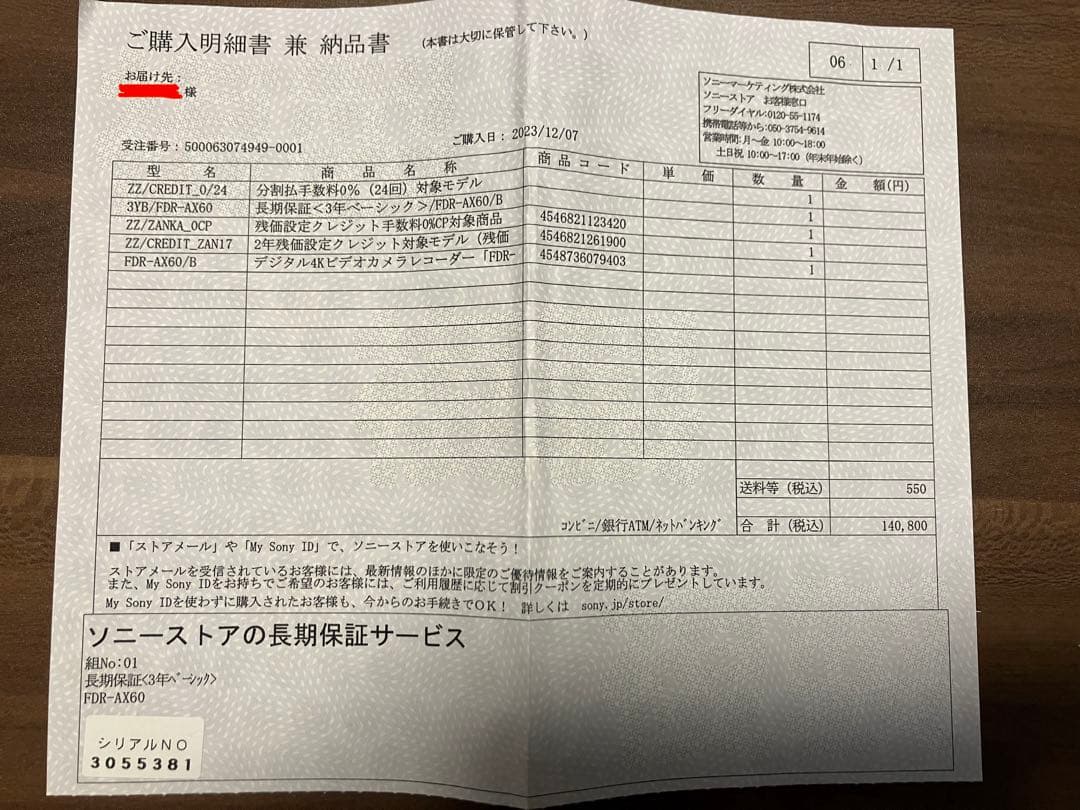 ご購入明細書 兼 納品書 (本書は大切に保管して下さい。)
06 1 /1
お届け先：
様
ソニーマーケティング株式会社
ソニーストア お客様窓口
フリーダイヤル:0120-55-1174
携帯電話等から:050-3754-9614
営業時間:月～金 10:00～18:00
土日祝 10:00～17:00 (年末年始除く)
受注番号：500063074949-0001
ご購入日：2023/12/07
型 名 商 品 名 称 商 品 コ ー ド 単 価 数 量 金 額(円)
ZZ/CREDIT_0/24 分割払手数料0％（24回）対象モデル 1
3YB/FDR-AX60 長期保証＜3年ベーシック＞/FDR-AX60/B 1
ZZ/ZANKA_0CP 残価設定クレジット手数料0%CP対象商品 4546821123420 1
ZZ/CREDIT_ZAN17 2年残価設定クレジット対象モデル（残価 4546821261900 1
FDR-AX60/B デジタル4Kビデオカメラレコーダー「FDR- 4548736079403 1
送料等（税込） 550
ｺﾝﾋﾞﾆ/銀行ATM/ﾈｯﾄﾊﾞﾝｷﾝｸﾞ 合 計（税込） 140,800
■「ストアメール」や「My Sony ID」で、ソニーストアを使いこなそう！
ストアメールを受信されているお客様には、最新情報のほかに限定のご優待情報をご案内することがあります。
また、My Sony IDをお持ちでご希望のお客様には、ご利用履歴に応じて割引クーポンを定期的にプレゼントしています。
My Sony IDを使わずに購入されたお客様も、今からのお手続きでＯＫ！ 詳しくは sony.jp/store/
ソニーストアの長期保証サービス
組No:01
長期保証<3年ﾍﾞｰｼｯｸ>
FDR-AX60
シリアルＮＯ
3055381